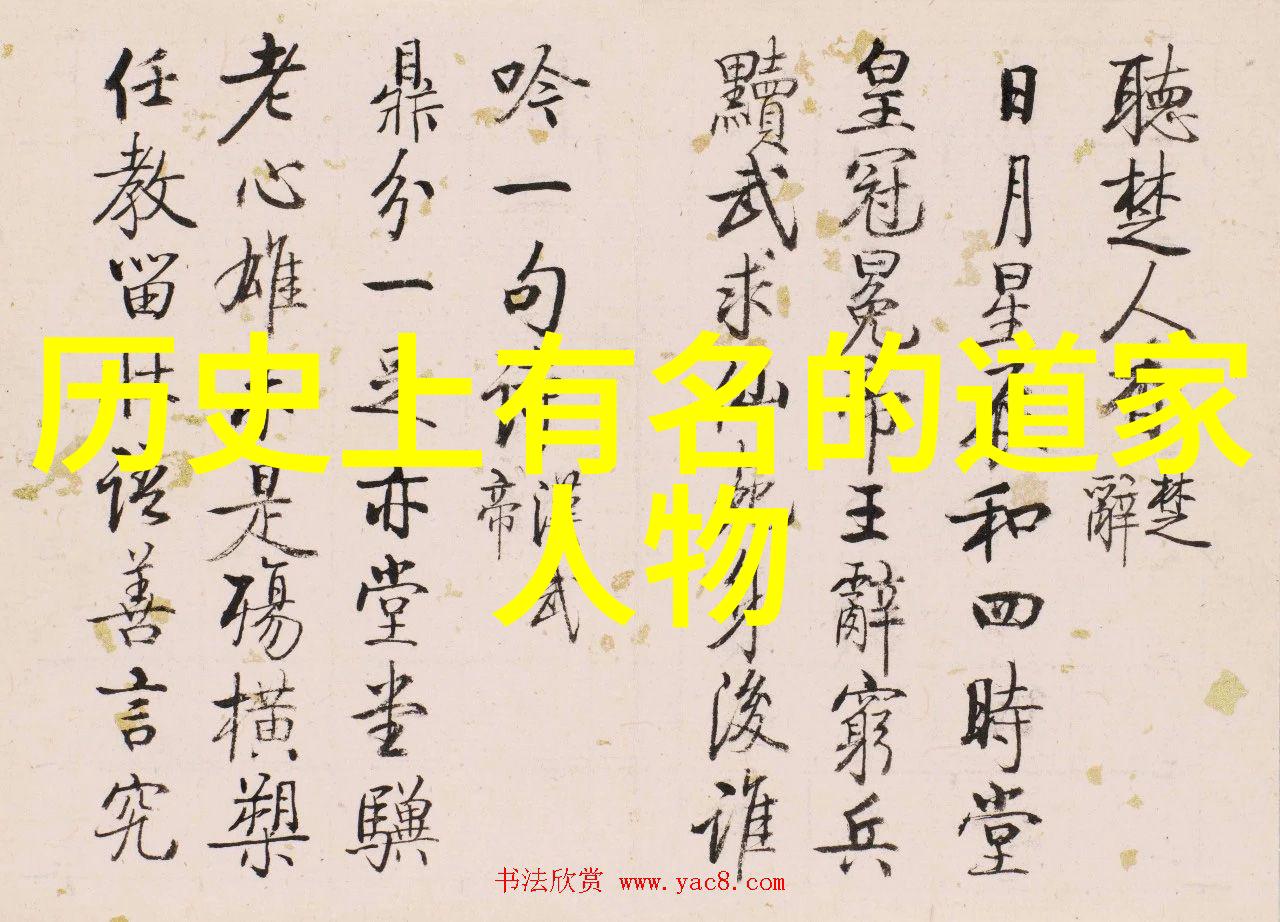 聽楚人楚辭
日月星辰和四時堂
皇冠冕帝王辭窮兵
黷武求仙身後誰
吟一句詩漢武帝
鼎分一足亦堂堂驥
老心雄未是殤橫槊
任教留壯語善言究
历史上有名的道家
人物
书法欣赏 www.yac8.com